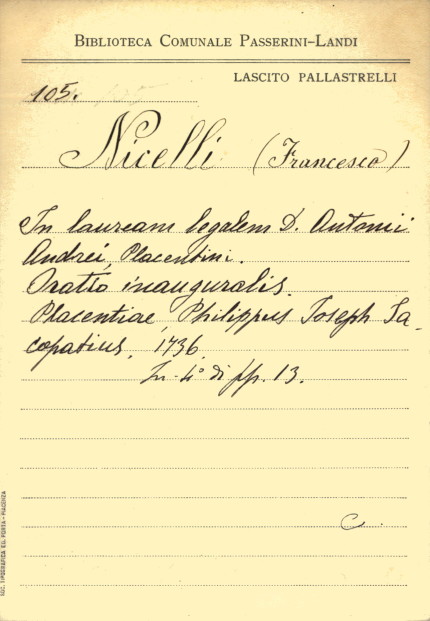 BIBLIOTECA COMUNALE PASSERINI-LANDI
LASCITO PALLASTRELLI
105.
Nicelli (Francesco)
In lauream legalem D. Antonii
Andrei, Placentini.
Oratio inauguralis.
Placentiae, Philippus Joseph Ja-
copatius, 1736.
In-4° di pp. 13.
C.
SOC. TIPOGRAFICA ED. PORTA - PIACENZA